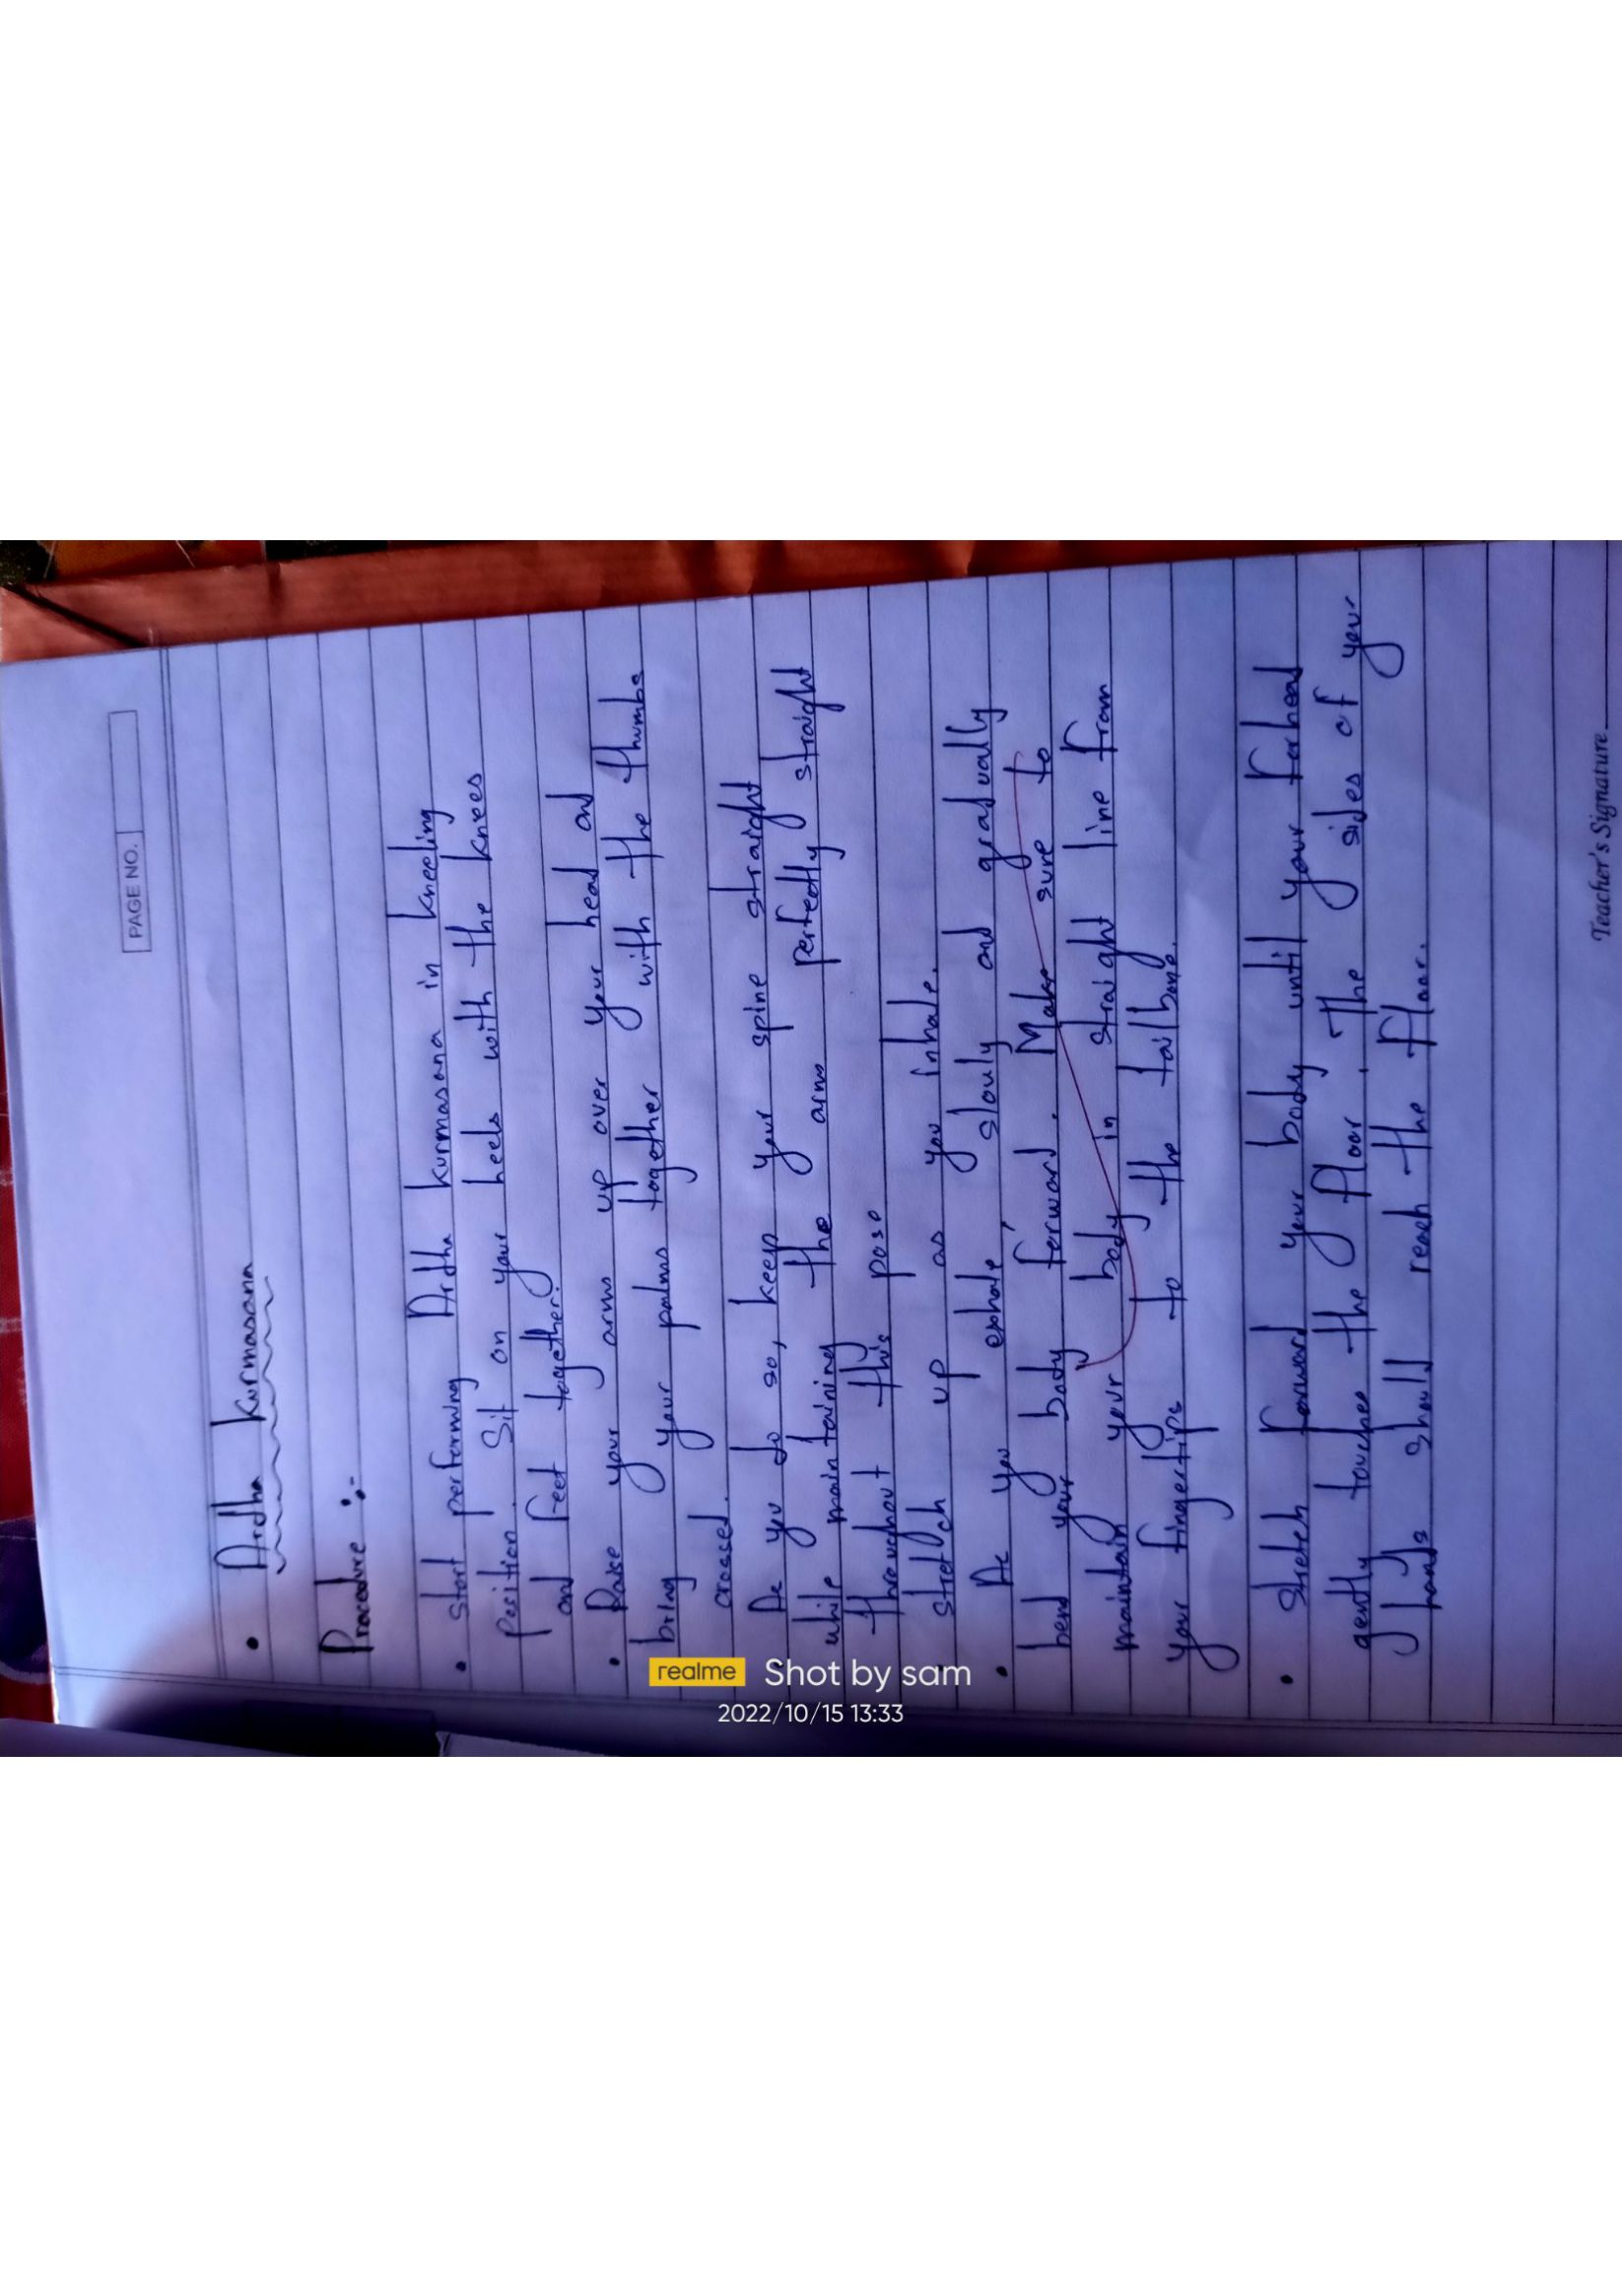 PAGE NO.
• Ardha kurmasana
Procedure :-
• Start performing Ardha kurmasana in kneeling
position. Sit on your heels with the knees
and feet together.
• Raise your arms up over your head and
bring your palms together with the thumbs
crossed.
As you do so, keep your spine straight
while maintaining the arms perfectly straight
throughout this pose
stretch up as you inhale.
• As you exhale, slowly and gradually
bend your body forward. Make sure to
maintain your body in straight line from
your fingertips to the tailbone.
• Stretch forward your body until your forhead
gently touches the floor. The sides of your
hands should reach the floor.
Teacher's Signature
realme Shot by sam
2022/10/15 13:33